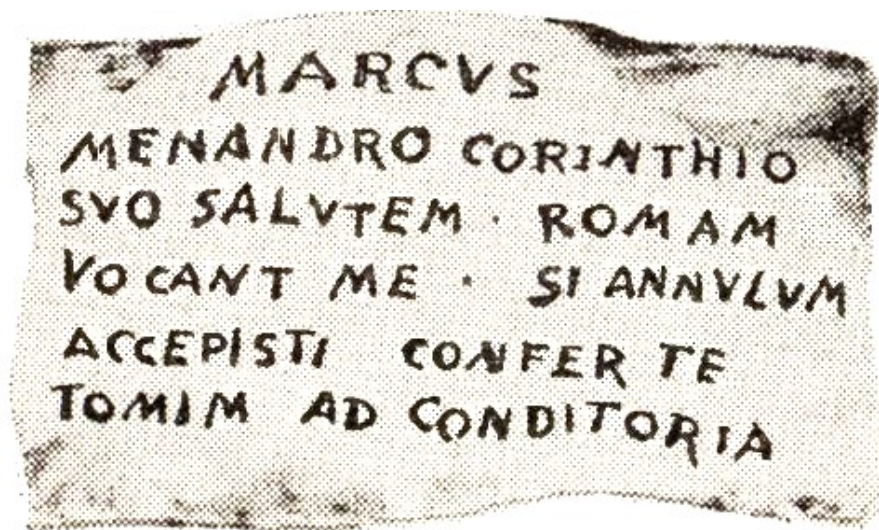 MARCVS
MENANDRO CORINTHIO
SVO SALVTEM · ROMAM
VOCANT ME · SI ANNVLVM
ACCEPISTI CONFER TE
TOMIM AD CONDITORIA